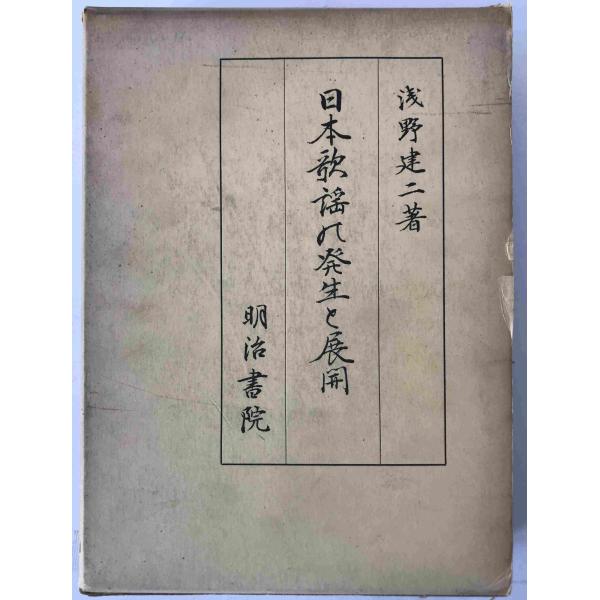 浅野建二著
日本歌謡の発生と展開
明治書院